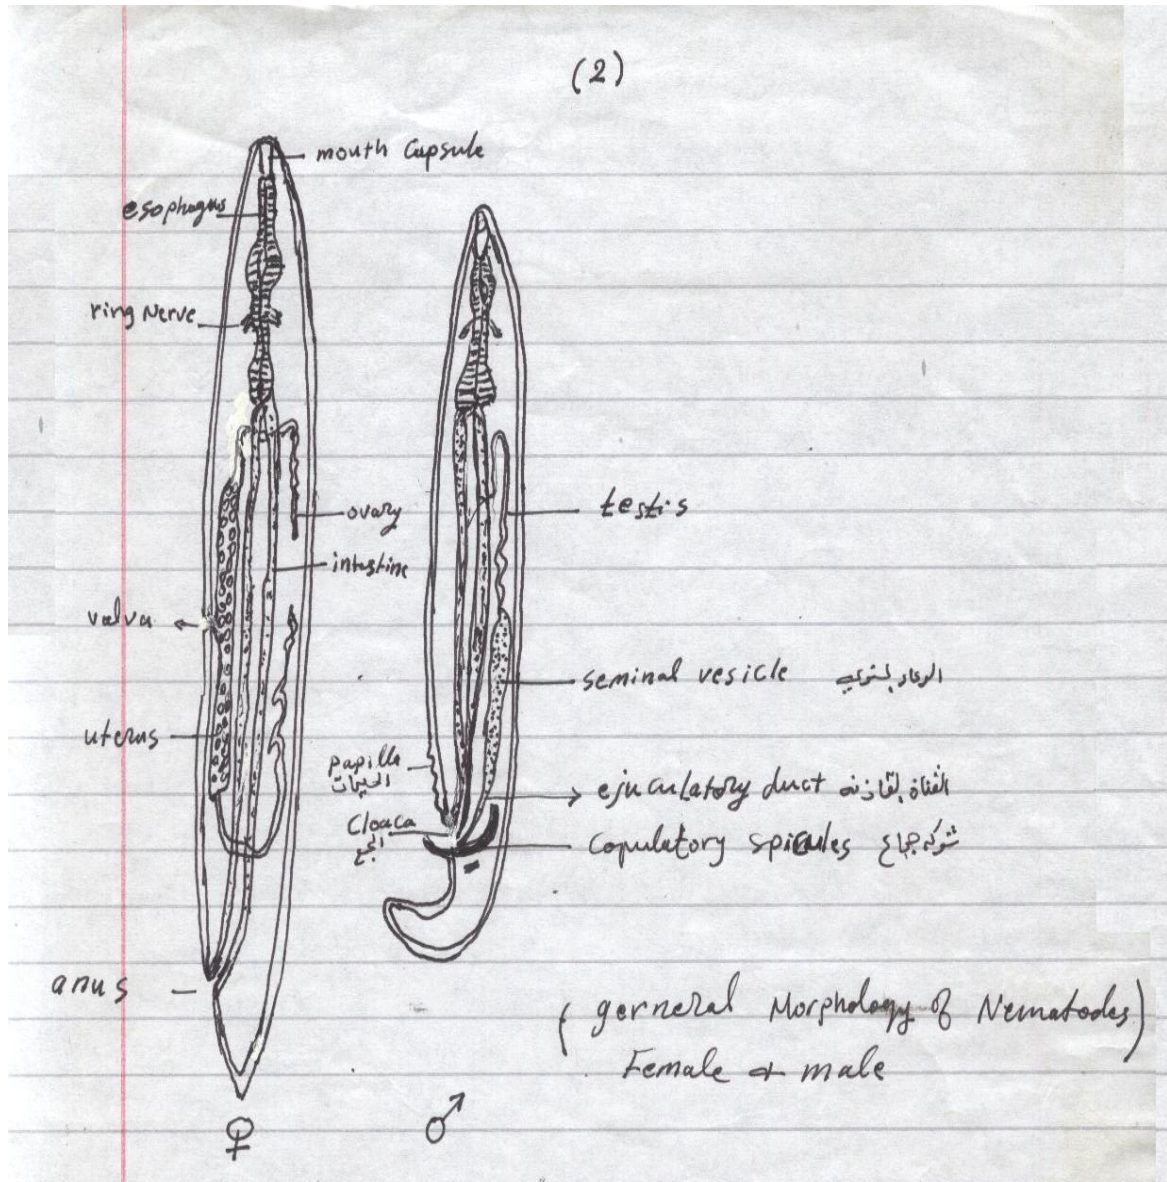 (2)
mouth Capsule
esophagus
ring Nerve
ovary
intestine
valva
uterus
anus
♀
testis
seminal vesicle الوعاء المنوي
papilla
الحليمات
ejuculatory duct القناة القاذفه
Cloaca
المجمع
Copulatory spicules شوكه جماع
♂
( gerneral Morphology of Nematodes)
Female & male